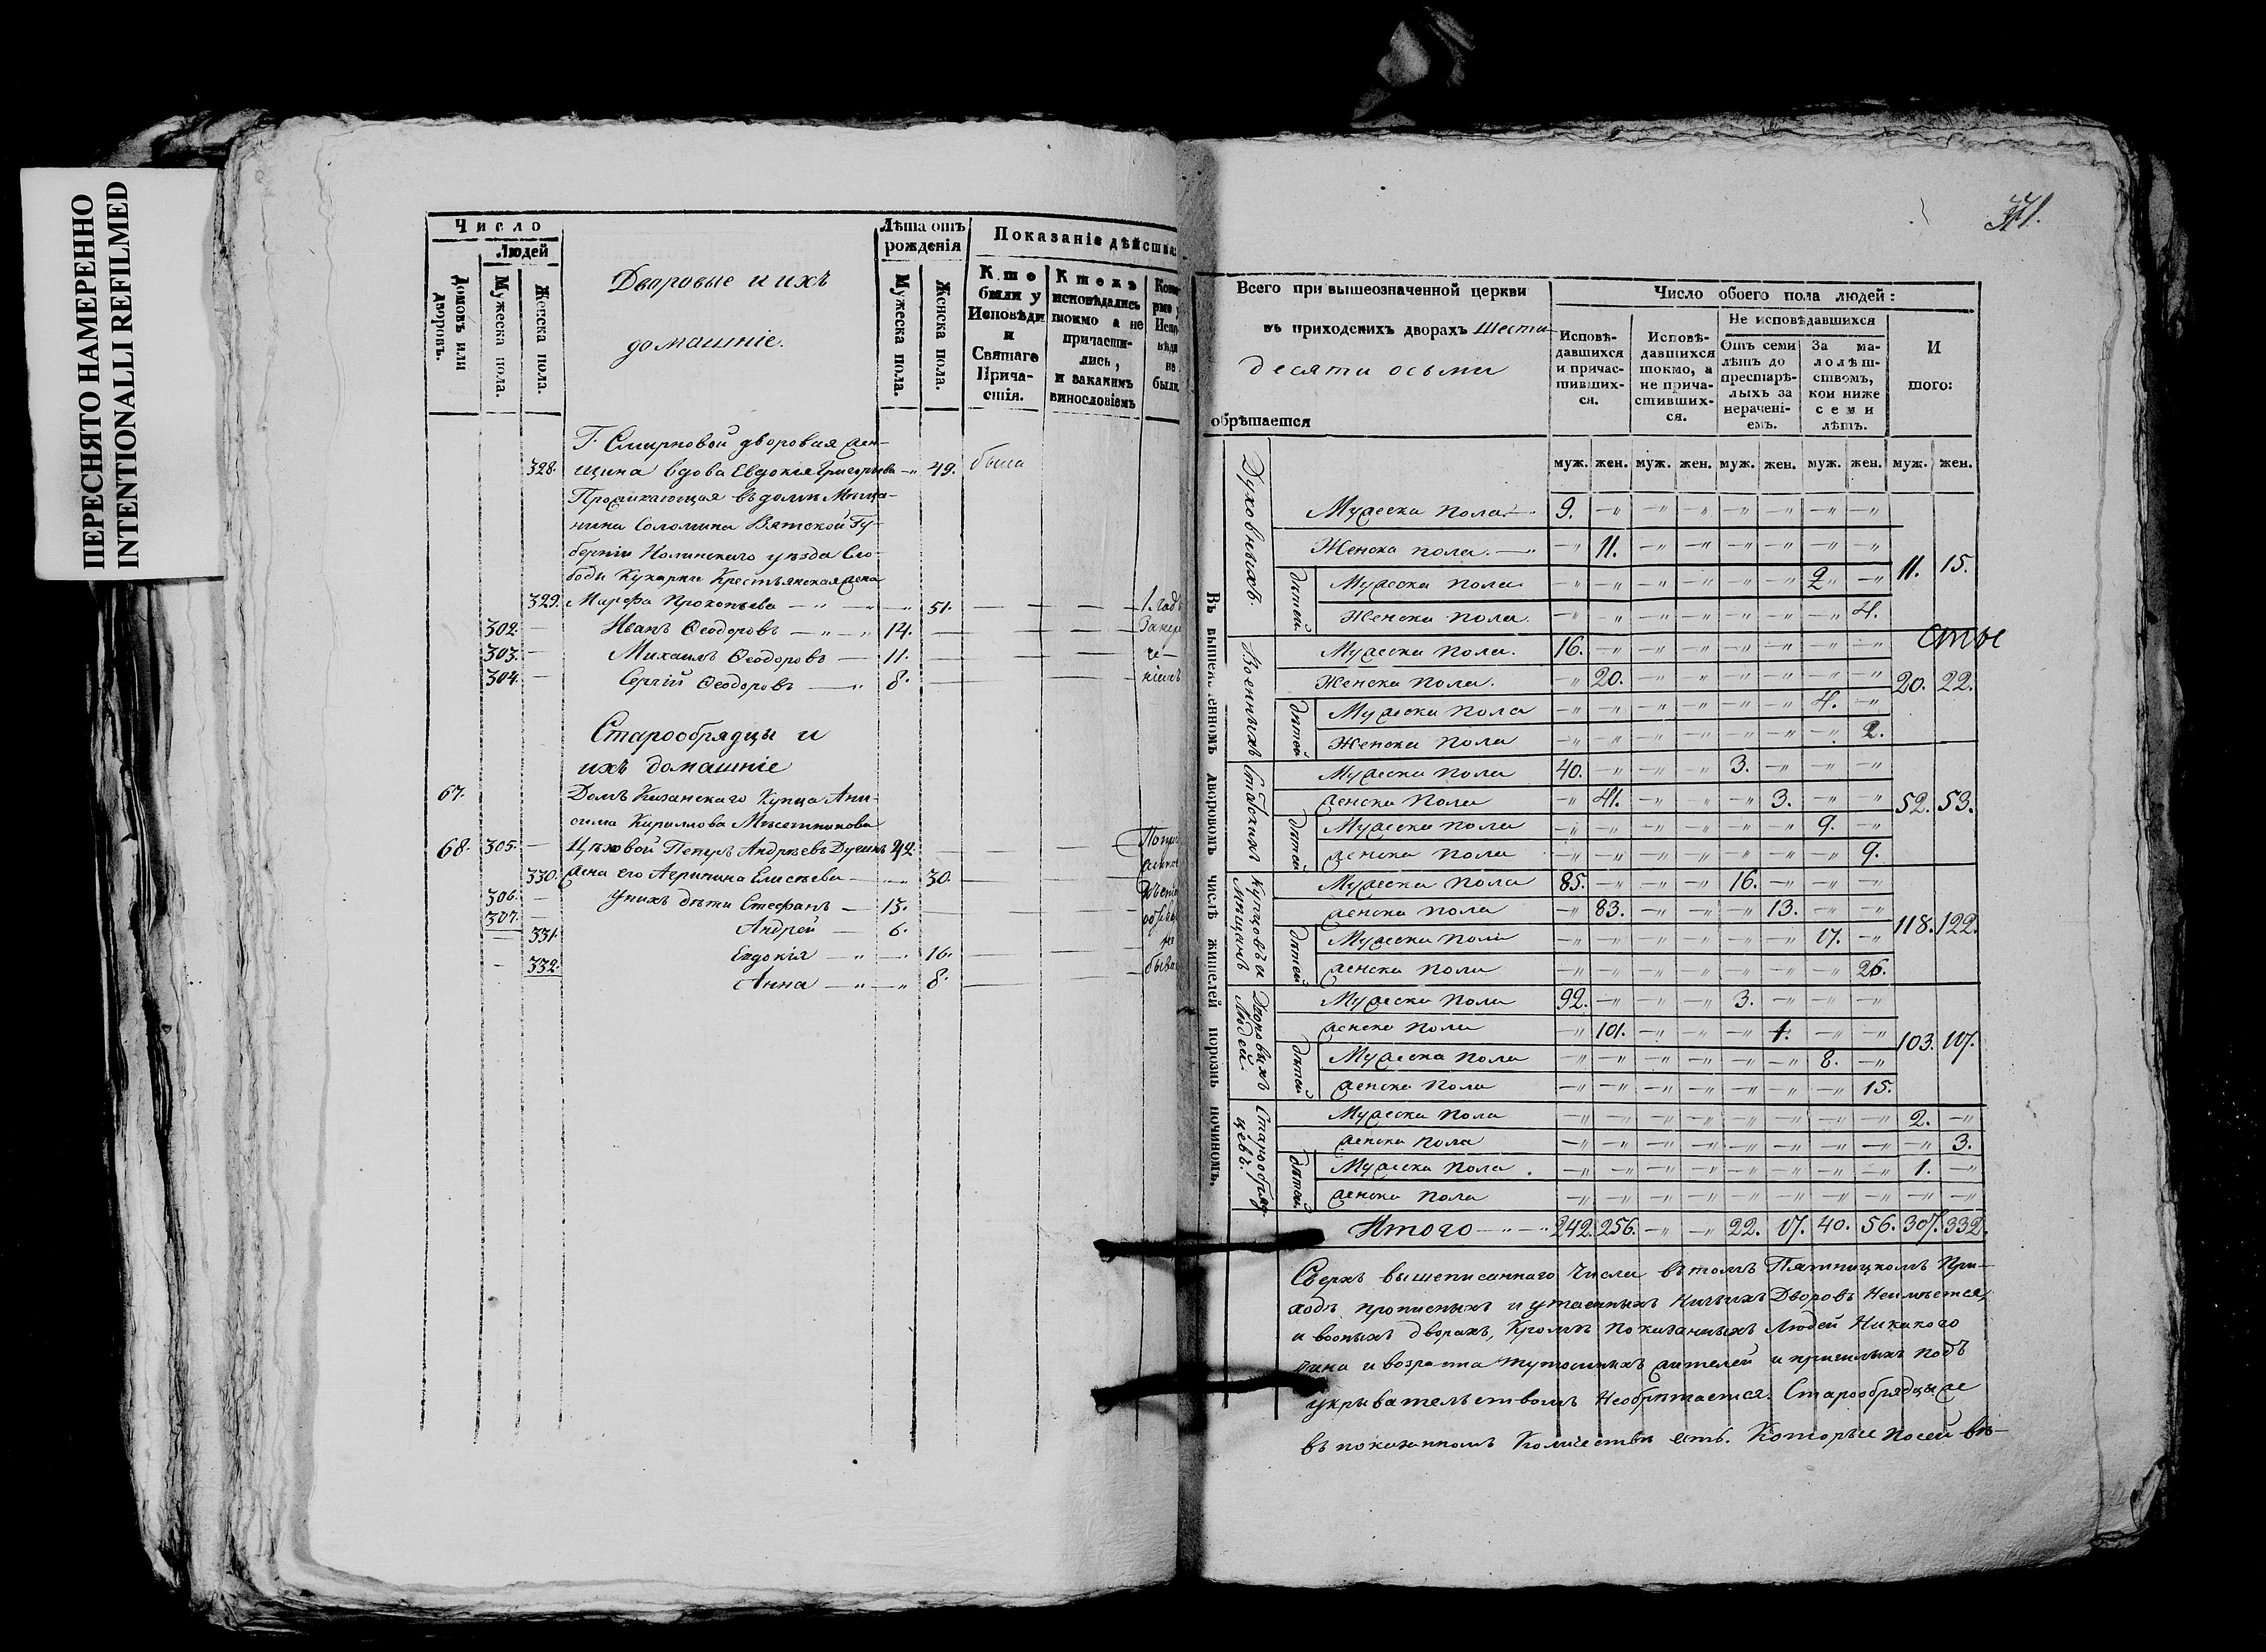 ПЕРЕСНЯТО НАМЕРЕННО
INTENTIONALLI REFILMED
Число
Людей
Домовъ или дворовъ.
Мужеска пола.
Женска пола.
Дворовые и ихъ
домашніе.
Лѣта отъ рожденія
Мужеска пола.
Женска пола.
Показаніе дѣйства:
Кто были у Исповѣди и Святаго Причастія.
Ктожъ исповѣдались токмо а не причастились, и закакимъ винословіемъ
Г. Смирновой дворовая жен-
328. щина вдова Евдокія Григорьева —„ 49. была
Проживающая въ домѣ Мѣща-
нина Соломина Вятской Гу-
берніи Нолинскаго уѣзда Сло-
боды Кукарки Крестьянская жена
329. Марѳа Прокопьева —„ —„ —„ 51. — — — 1. годъ
302. — Иванъ Ѳеодоровъ —„ —„ 14. — — —
303. — Михаилъ Ѳеодоровъ — 11. — — —
304. — Сергій Ѳеодоровъ —„ 8. — — — ніемъ
Старообрядцы и
ихъ домашніе
67. Домъ Казанскаго Купца Ани-
сима Кириллова Мѣсетникова
68. 305. — Цѣховой Петръ Андрѣевъ 42. — —
330. Жена его Агрипина Елисѣева — —„ 30. — —
306. — У нихъ дѣти Стефанъ — 13. — —
307. — Андрей — 6. — —
— 331. Евдокія —„ —„ 16. — — не
— 332. Анна —„ —„ 8. — —
371.
Всего при вышеозначенной церкви
въ приходскихъ дворахъ Шести-
десяти осьми
обрѣтается
Число обоего пола людей:
Исповѣдавшихся и причастившихся.
Исповѣдавшихся токмо, а не причастившихся.
Не исповѣдавшихся
Отъ семи лѣтъ до престарѣлыхъ за нерачені- емъ.
За малолѣтствомъ, кои ниже семи лѣтъ.
И того:
муж. жен. муж. жен. муж. жен. муж. жен. муж. жен.
Духовныхъ.
Мужеска пола 9. —„ —„ —„ —„ —„ —„ —„
Женска пола. —„ 11. —„ —„ —„ —„ —„ —„
дѣтей
Мужеска пола —„ —„ —„ —„ —„ —„ 2 —„ 11. 15.
Женска пола. —„ —„ —„ —„ —„ —„ —„ 4.
Военныхъ
Мужеска пола. 16. —„ —„ —„ —„ —„ —„ —„
Женска пола. —„ 20. —„ —„ —„ —„ —„ —„ 20. 22.
дѣтей
Мужеска пола —„ —„ —„ —„ —„ —„ 4. —„
Женска пола —„ —„ —„ —„ —„ —„ —„ 2.
Статскихъ
Мужеска пола 40. —„ —„ —„ 3. —„ —„ —„
женска пола —„ 41. —„ —„ —„ 3. —„ —„ 52. 53.
дѣтей
Мужеска пола —„ —„ —„ —„ —„ —„ 9. —„
женска пола —„ —„ —„ —„ —„ —„ —„ 9.
Купцовъ и Мѣщанъ
Мужеска пола 85. —„ —„ —„ 16. —„ —„ —„
женска пола —„ 83. —„ —„ —„ 13. —„ —„ 118. 122.
дѣтей
Мужеска пола —„ —„ —„ —„ —„ —„ 17. —„
женска пола —„ —„ —„ —„ —„ —„ —„ 26.
Дворовыхъ Людей
Мужеска пола 92. —„ —„ —„ 3. —„ —„ —„
женска пола —„ 101. —„ —„ —„ 1. —„ —„ 103. 117.
дѣтей
Мужеска пола —„ —„ —„ —„ —„ —„ 8. —„
женска пола —„ —„ —„ —„ —„ —„ —„ 15.
Старообрядцевъ.
Мужеска пола —„ —„ —„ —„ —„ —„ —„ —„ 2. —„
женска пола —„ —„ —„ —„ —„ —„ —„ —„ —„ 3.
дѣтей.
Мужеска пола. —„ —„ —„ —„ —„ —„ —„ —„ 1. —„
женска пола —„ —„ —„ —„ —„ —„ —„ —„ —„ —„
Итого —„ —„ 242. 256. —„ —„ 22. 17. 40. 56. 307. 332.
дворовомъ числѣ жителей порознь починомъ.
Сверхъ вышеписаннаго числа въ томъ Пятницкомъ При-
ходѣ прописныхъ и утаенныхъ Ничьихъ Дворовъ Неимѣется,
и воныхъ дворахъ, Кромѣ показанныхъ Людей Никакого
чина и возраста тутошныхъ жителей и пришлыхъ подъ
укрывательствомъ Необрѣтается. Старообрядцы же
въ показанномъ Количествѣ есть. Которые посей вѣ-